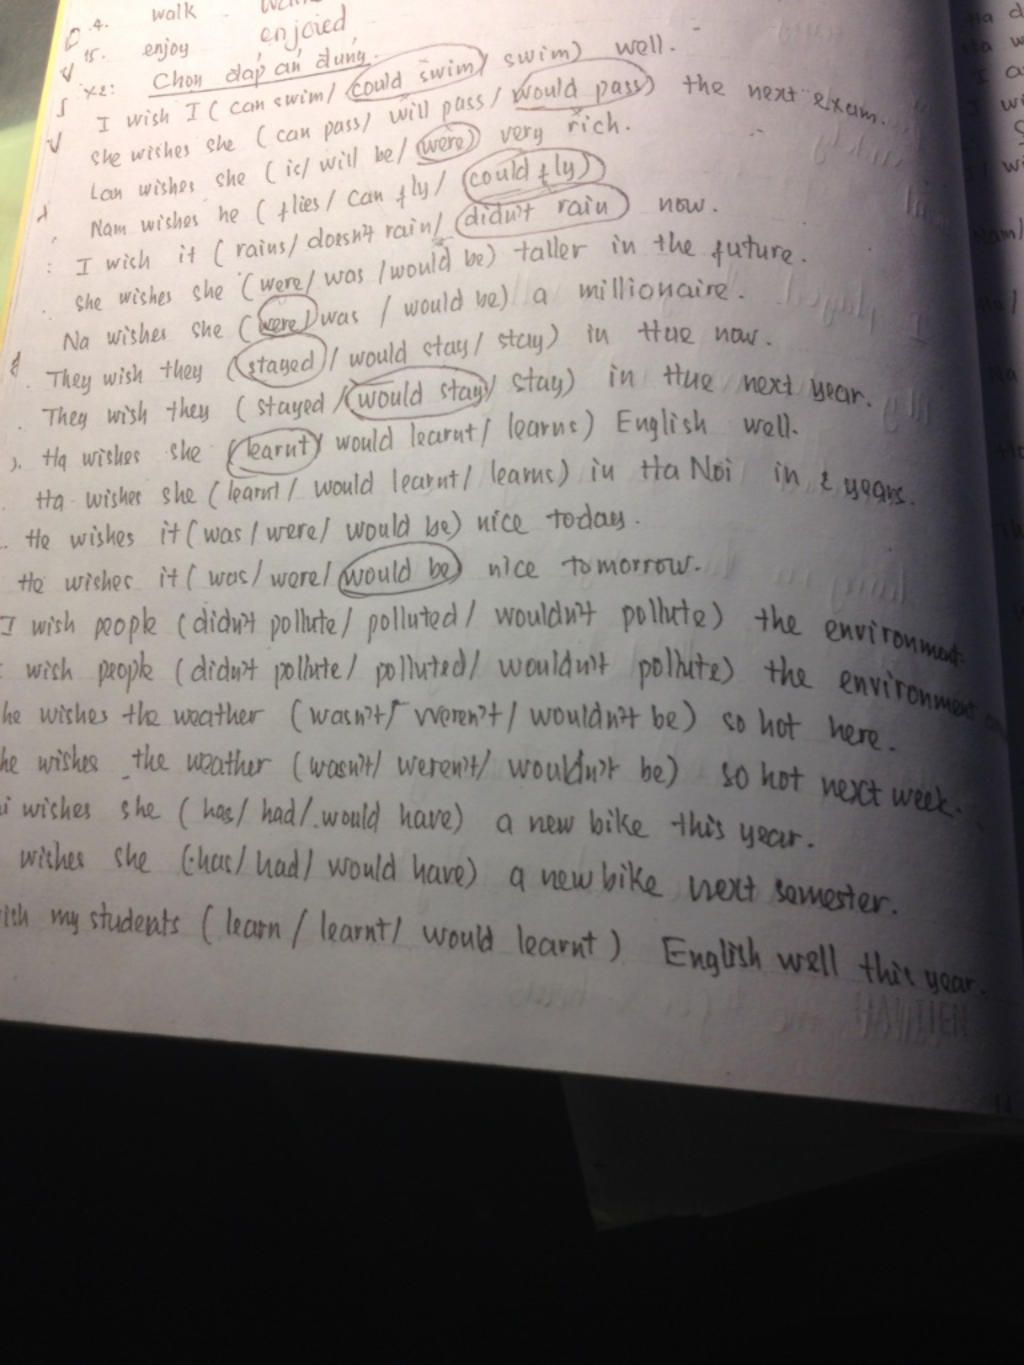 4. walk
15. enjoy enjoied
x2: Chọn đáp án đúng.
I wish I (can swim/ could swim/ swim) well.
She wishes she (can pass/ will pass/ would pass) the next exam.
Lan wishes she (is/ will be/ were) very rich.
Nam wishes he (flies/ can fly/ could fly)
I wish it (rains/ doesn't rain/ didn't rain now.
She wishes she (were/ was /would be) taller in the future.
Na wishes she (were/ was / would be) a millionaire.
They wish they (stayed / would stay/ stay) in Hue now.
They wish they (stayed / would stay/ stay) in Hue next year.
). Ha wishes she (learnt/ would learnt/ learns) English well.
Ha wishes she (learnt/ would learnt/ learns) in Ha Noi in 2 years.
He wishes it (was/ were/ would be) nice today.
He wishes it (was/ were/ would be) nice tomorrow.
I wish people (didn't pollute/ polluted/ wouldn't pollute) the environment.
wish people (didn't pollute/ polluted/ wouldn't pollute) the environment
he wishes the weather (wasn't/ weren't/ wouldn't be) so hot here.
he wishes the weather (wasn't/ weren't/ wouldn't be) so hot next week.
i wishes she (has/ had/ would have) a new bike this year.
wishes she (has/ had/ would have) a new bike next semester.
ish my students (learn / learnt/ would learnt) English well this year.